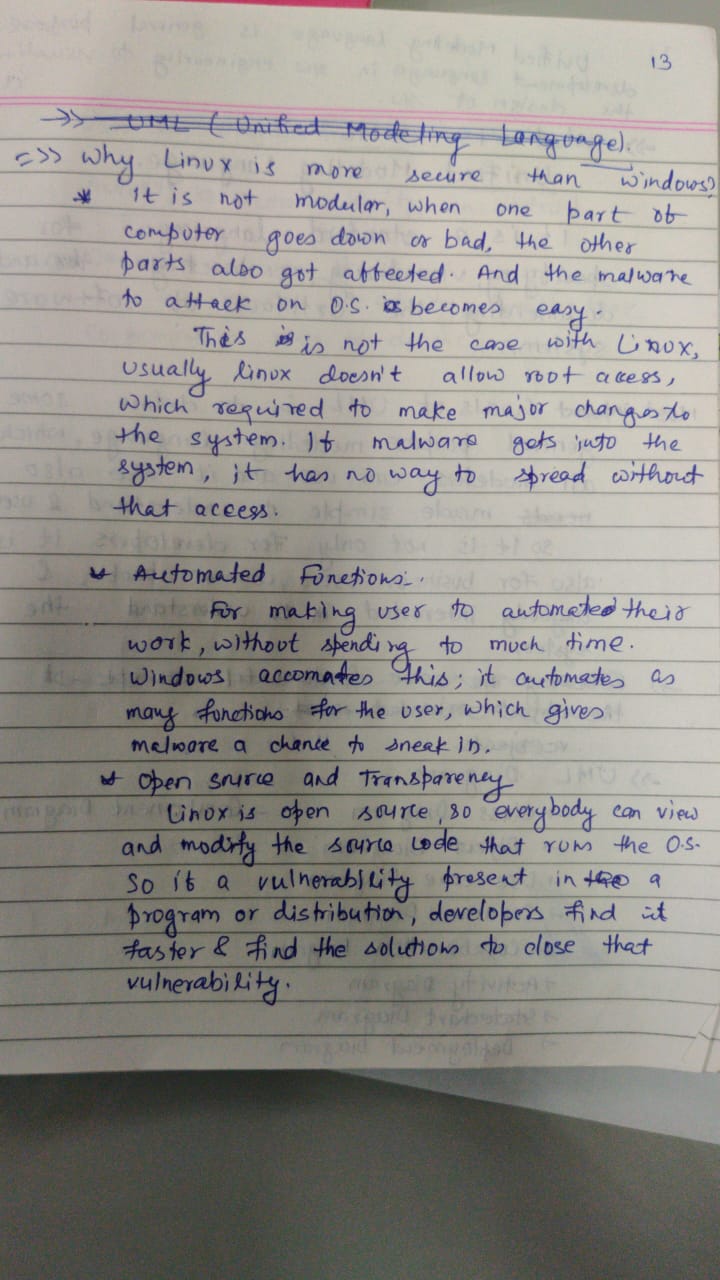 13
->> UML ( Unified Modeling Language).
=>> Why Linux is more secure than windows?
* It is not modular, when one part of
computer goes down or bad, the other
parts also got affected. And the malware
to attack on O.S. becomes easy.
This is not the case with Linux,
usually linux doesn't allow root access,
which required to make major changes to
the system. If malware gets into the
system, it has no way to spread without
that access.
* Automated Functions:.
For making user to automated their
work, without spending to much time.
Windows accomates this; it automates as
many functions for the user, which gives
malware a chance to sneak in.
* Open source and Transparency
Linux is open source, so everybody can view
and modify the source code that runs the O.S.
So if a vulnerability present in a
program or distribution, developers find it
faster & find the solutions to close that
vulnerability.